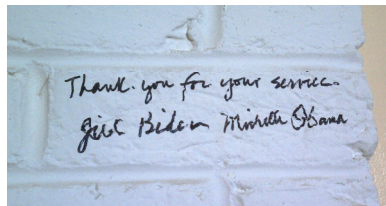 Thank you for your service.
Jill Biden Michelle Obama